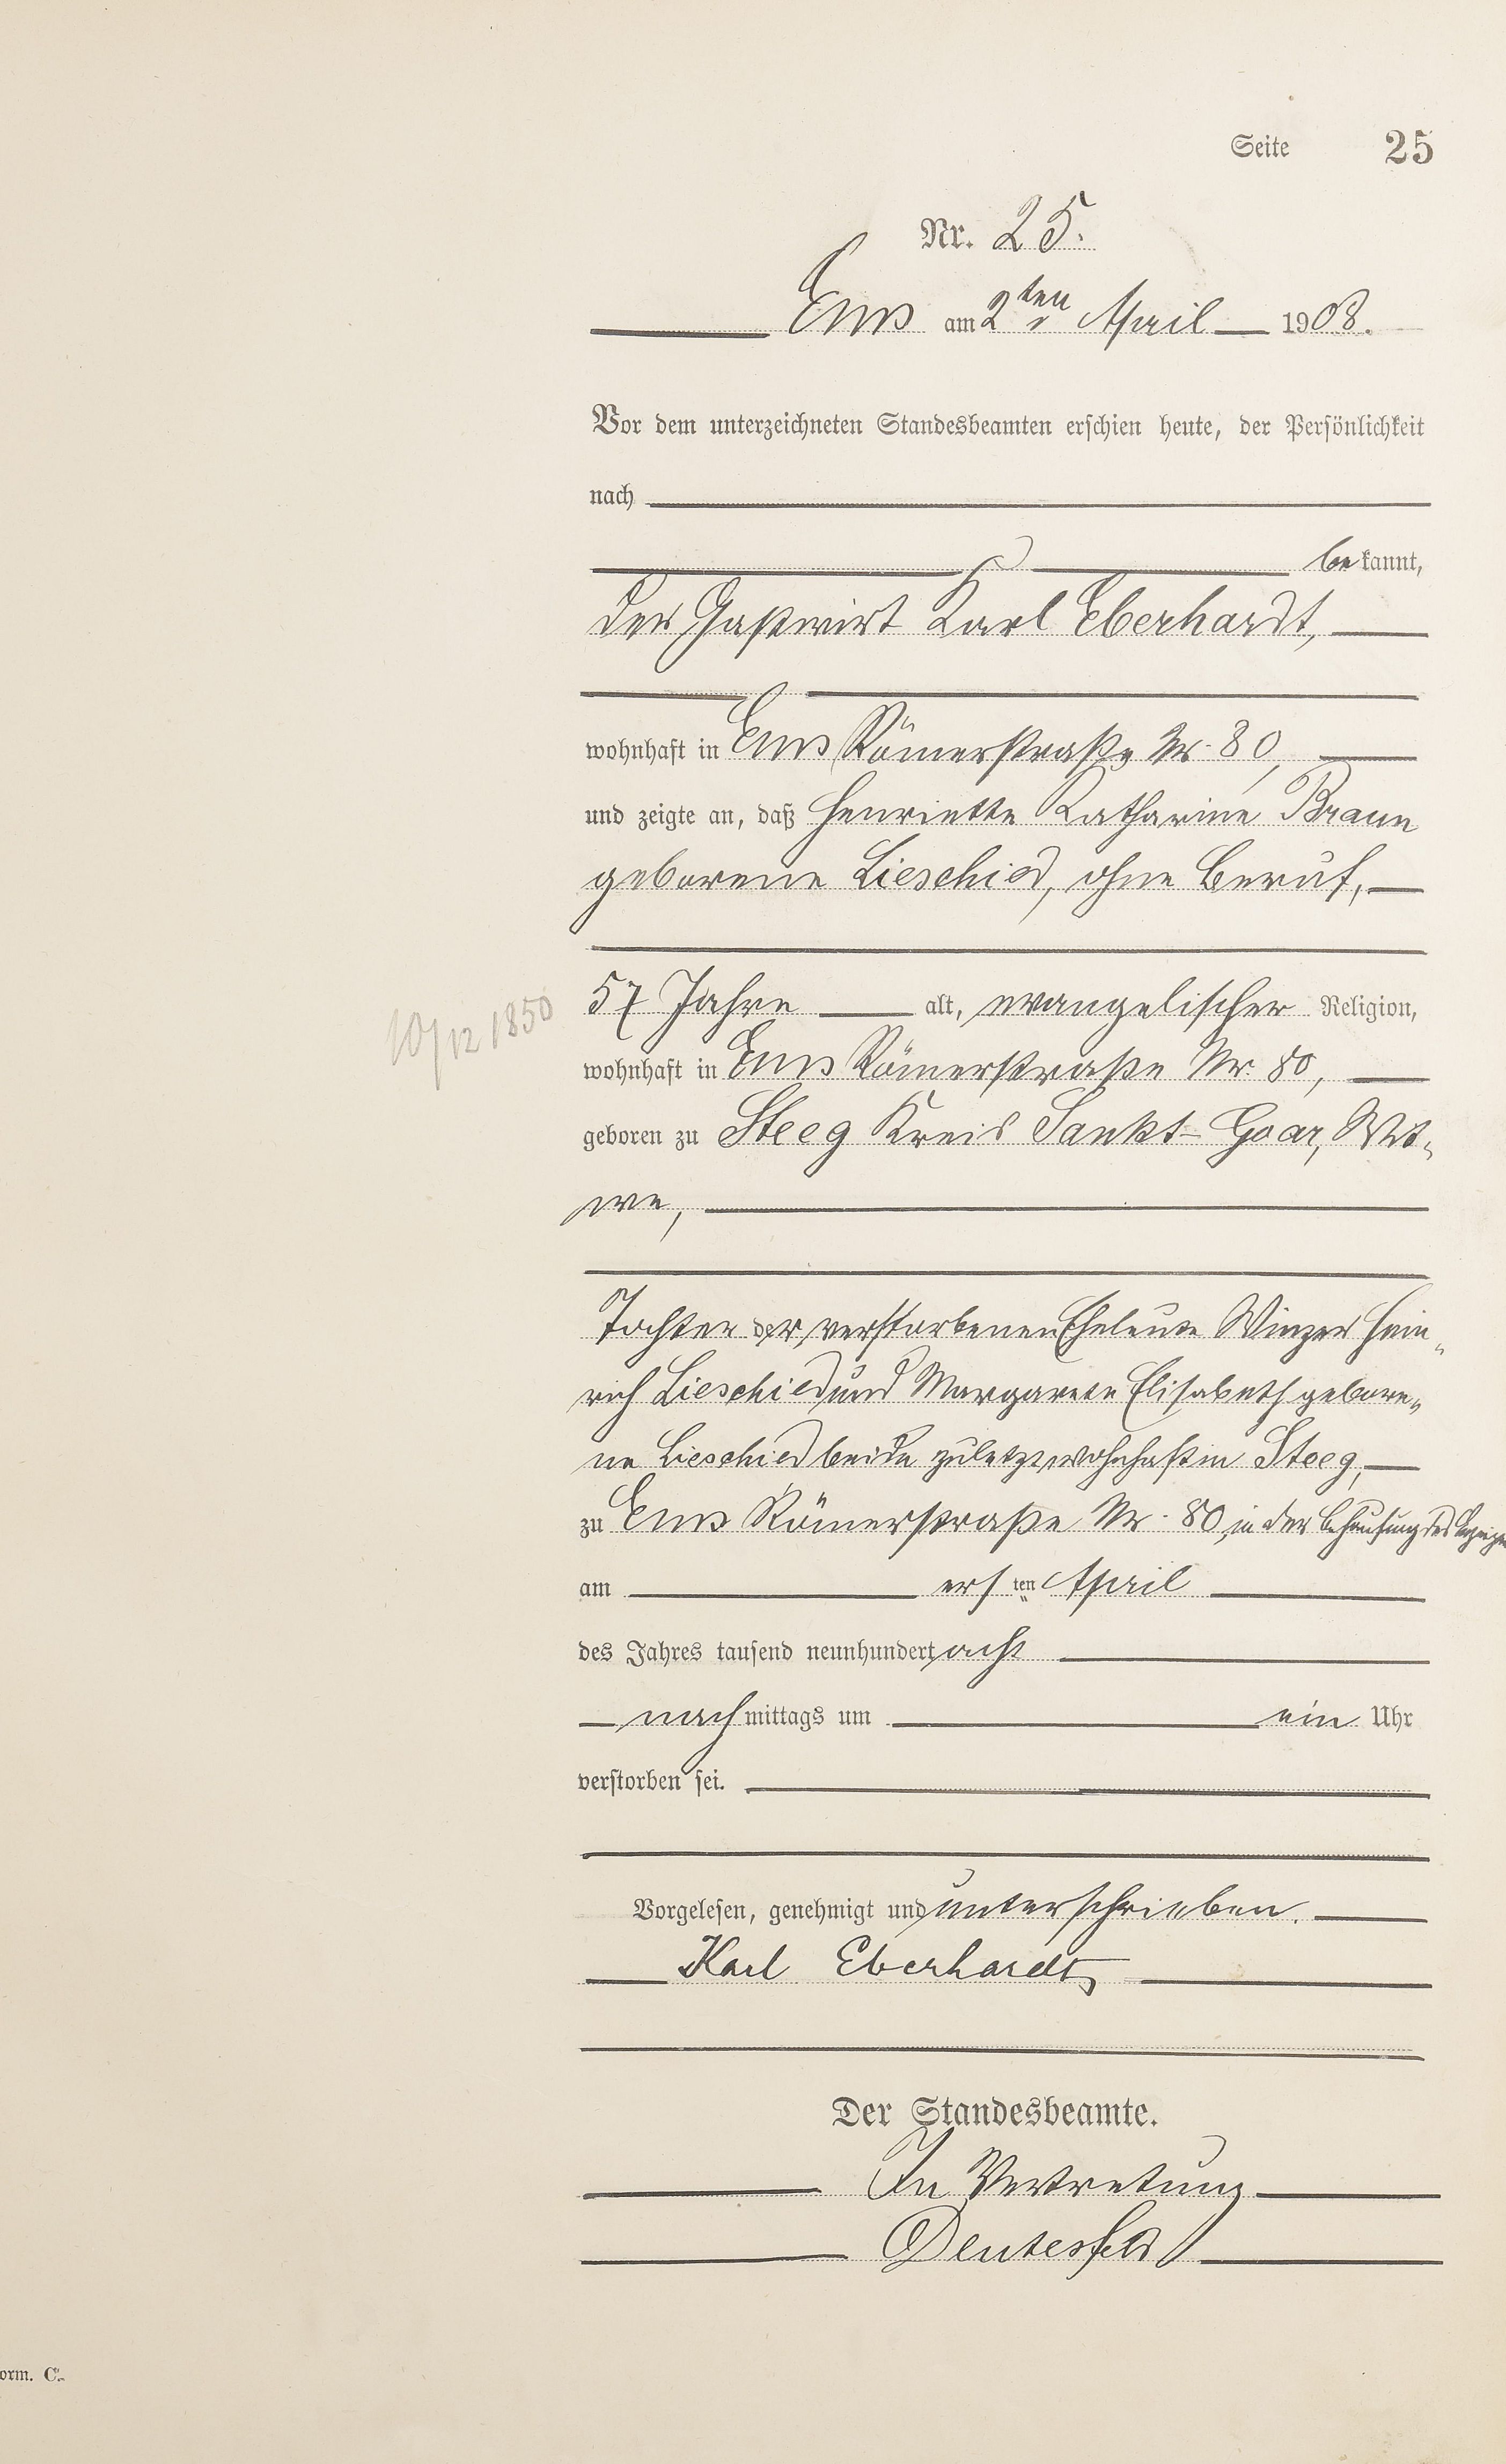 Seite 25
Nr. 25.
Ems am 2ten April 1908.
Vor dem unterzeichneten Standesbeamten erschien heute, der Persönlichkeit
nach
bekannt,
der Gastwirt Karl Eberhardt,
wohnhaft in Ems Römerstraße Nr. 80,
und zeigte an, daß Henriette Katharine Braun
geborene Lieschied, ohne Beruf,
57 Jahre alt, evangelischer Religion,
10/12 1850
wohnhaft in Ems Römerstraße Nr. 80,
geboren zu Steeg Kreis Sankt-Goar, Wit-
we,
Tochter der verstorbenen Eheleute Winzer Hein-
rich Lieschied und Margarete Elisabeth gebore-
ne Lieschied beide zuletzt wohnhaft in Steeg,
zu Ems Römerstraße Nr. 80, in der Behausung des
am ersten April
des Jahres tausend neunhundert acht
nachmittags um ein Uhr
verstorben sei.
Vorgelesen, genehmigt und unterschrieben.
Karl Eberhardt
Der Standesbeamte.
In Vertretung
Deutesfeld
orm. C.